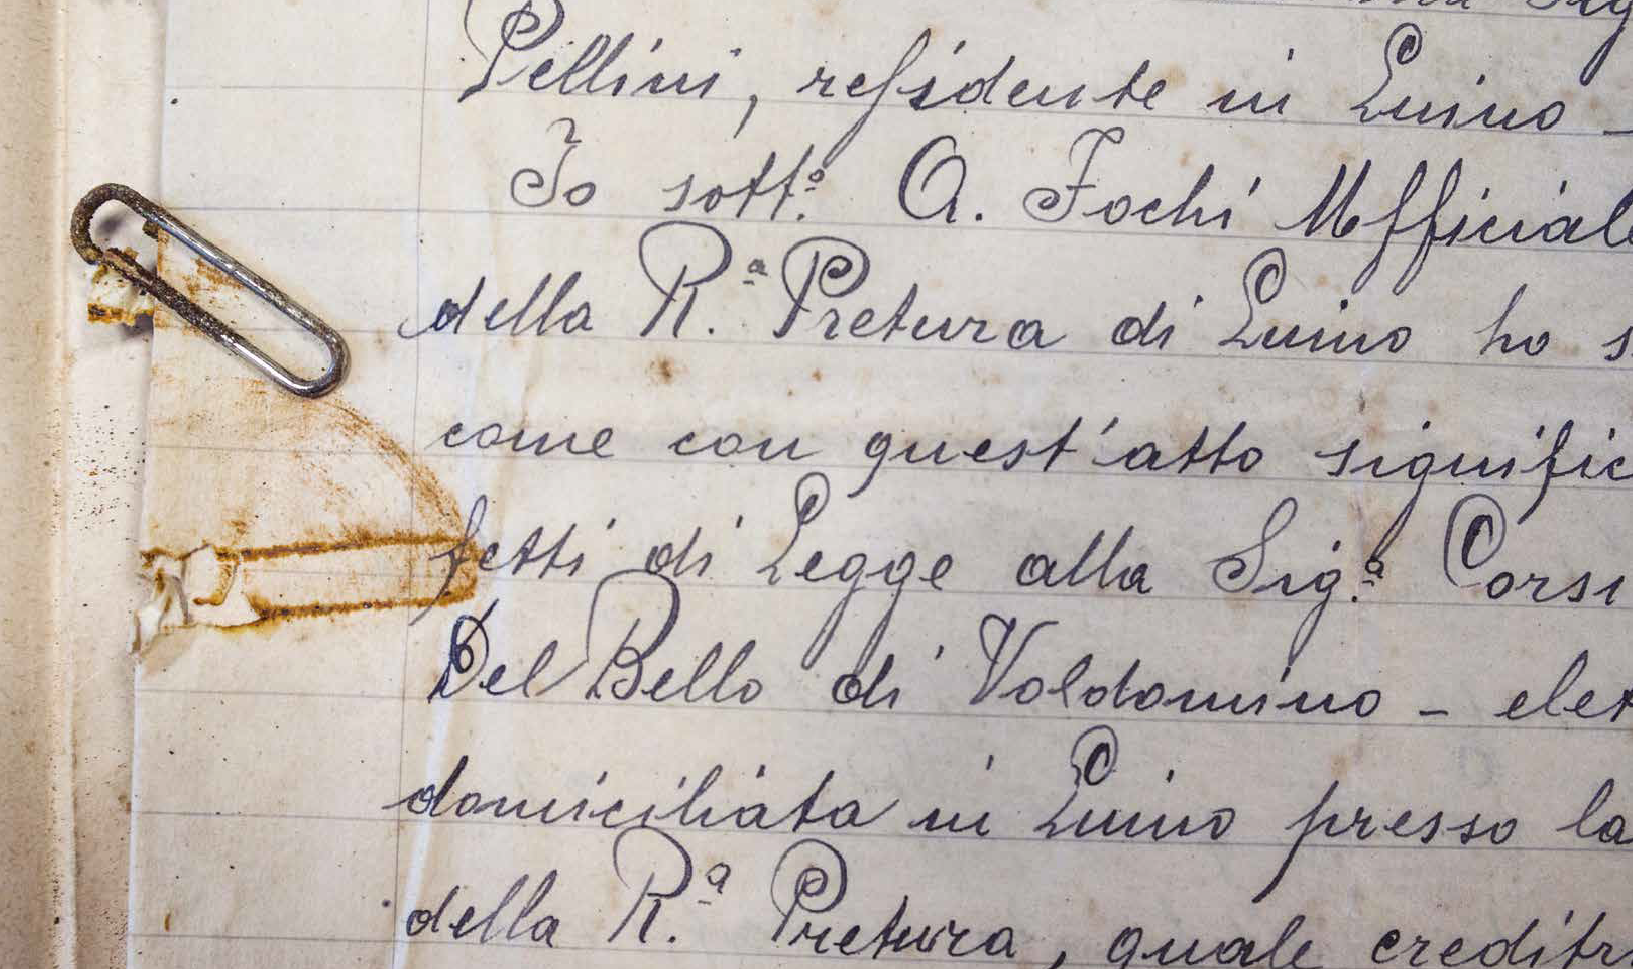 Pellini, residente in Luino -
Io sott.º A. Fochi Ufficiale
della R.ª Pretura di Luino ho s
come con quest'atto signific
fetti di Legge alla Sig.ª Corsi
Del Bello di Voldomino - elet
domiciliata in Luino presso la
della R.ª Pretura, quale creditr